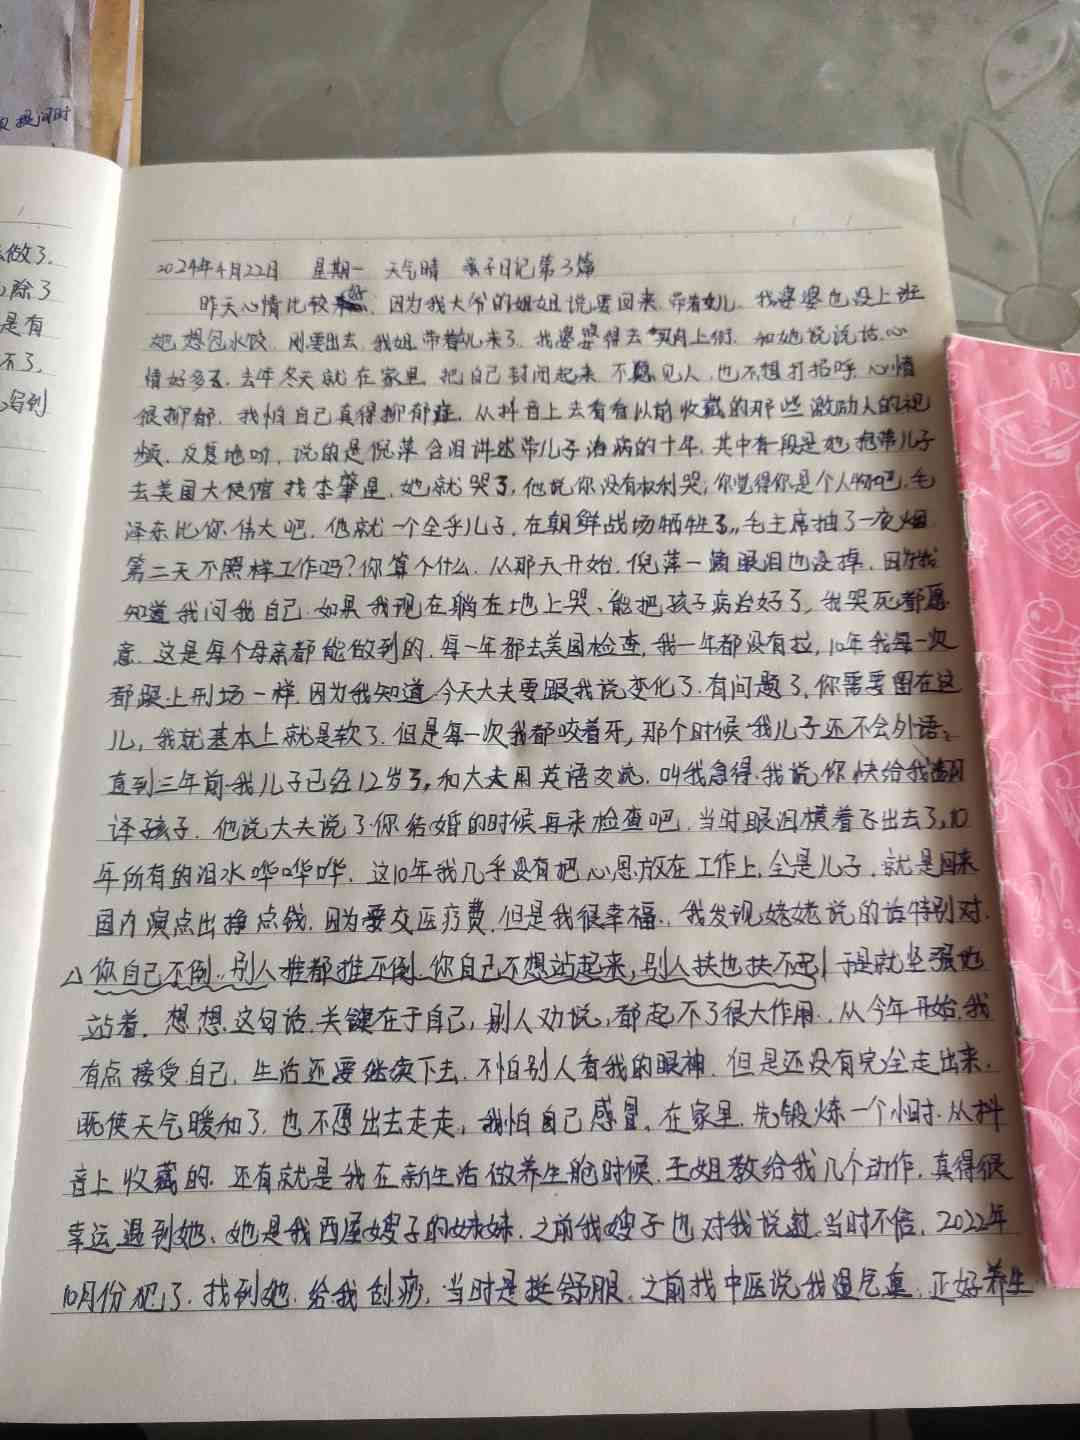 良提问时
么做了.
除了
是有
不了,
写到
2024年4月22日 星期一 天气晴 亲子日记第3篇
昨天心情比较好, 因为我大爷的姐姐说要回来.带着女儿. 我婆婆也没上班
她想包水饺. 刚要出去.我姐带着女儿来了.我婆婆得去 上街. 和她说说话.心
情好多了. 去年冬天就在家里.把自己封闭起来.不愿见人.也不想打招呼.心情
很抑郁. 我怕自己真得抑郁症.从抖音上去看看以前收藏的那些激励人的视
频.反复地听. 说的是倪萍含泪讲述带儿子治病的十年.其中有一段是她抱带儿子
去美国大使馆找李肇星.她就哭了,他说你没有权利哭,你觉得你是个人物吧,毛
泽东比你伟大吧. 他就一个全乎儿子.在朝鲜战场牺牲了.,毛主席抽了一夜烟
第二天不照样工作吗?你算个什么.从那天开始.倪萍一滴眼泪也没掉.因为我
知道我问我自己.如果我现在躺在地上哭、能把孩子病治好了,我哭死都愿
意.这是每个母亲都能做到的.每一年都去美国检查,我一年都没有拉,10年我每一次
都跟上刑场一样.因为我知道今天大夫要跟我说变化了.有问题了.你需要留在这
儿,我就基本上就是软了.但是每一次我都咬着牙,那个时候我儿子还不会外语,
直到三年前我儿子已经12岁了,和大夫用英语交流.叫我急得.我说你快给我翻
译孩子. 他说大夫说了你结婚的时候再来检查吧.当时眼泪横着飞出去了,10
年所有的泪水哗哗哗.这10年我几乎没有把心思放在工作上.全是儿子.就是回来
国内演点出挣点钱.因为要交医疗费.但是我很幸福..我发现姥姥说的话特别对.
△你自己不倒..别人推都推不倒.你自己不想站起来,别人扶也扶不起|于是就坚强地
站着. 想想.这句话.关键在于自己,别人劝说,都起不了很大作用..从今年开始.我
有点接受自己.生活还要继续下去.不怕别人看我的眼神.但是还没有完全走出来.
既使天气暖和了.也不愿出去走走,我怕自己感冒.在家里.先锻炼一个小时.从抖
音上收藏的.还有就是我在新生活做养生舱时候.王姐教给我几个动作.真得很
幸运遇到她、她是我西屋嫂子的妹妹.之前我嫂子也对我说过.当时不信. 2022年
10月份犯了.找到她.给我刮痧,当时是挺舒服.之前找中医说我湿气重.正好养生